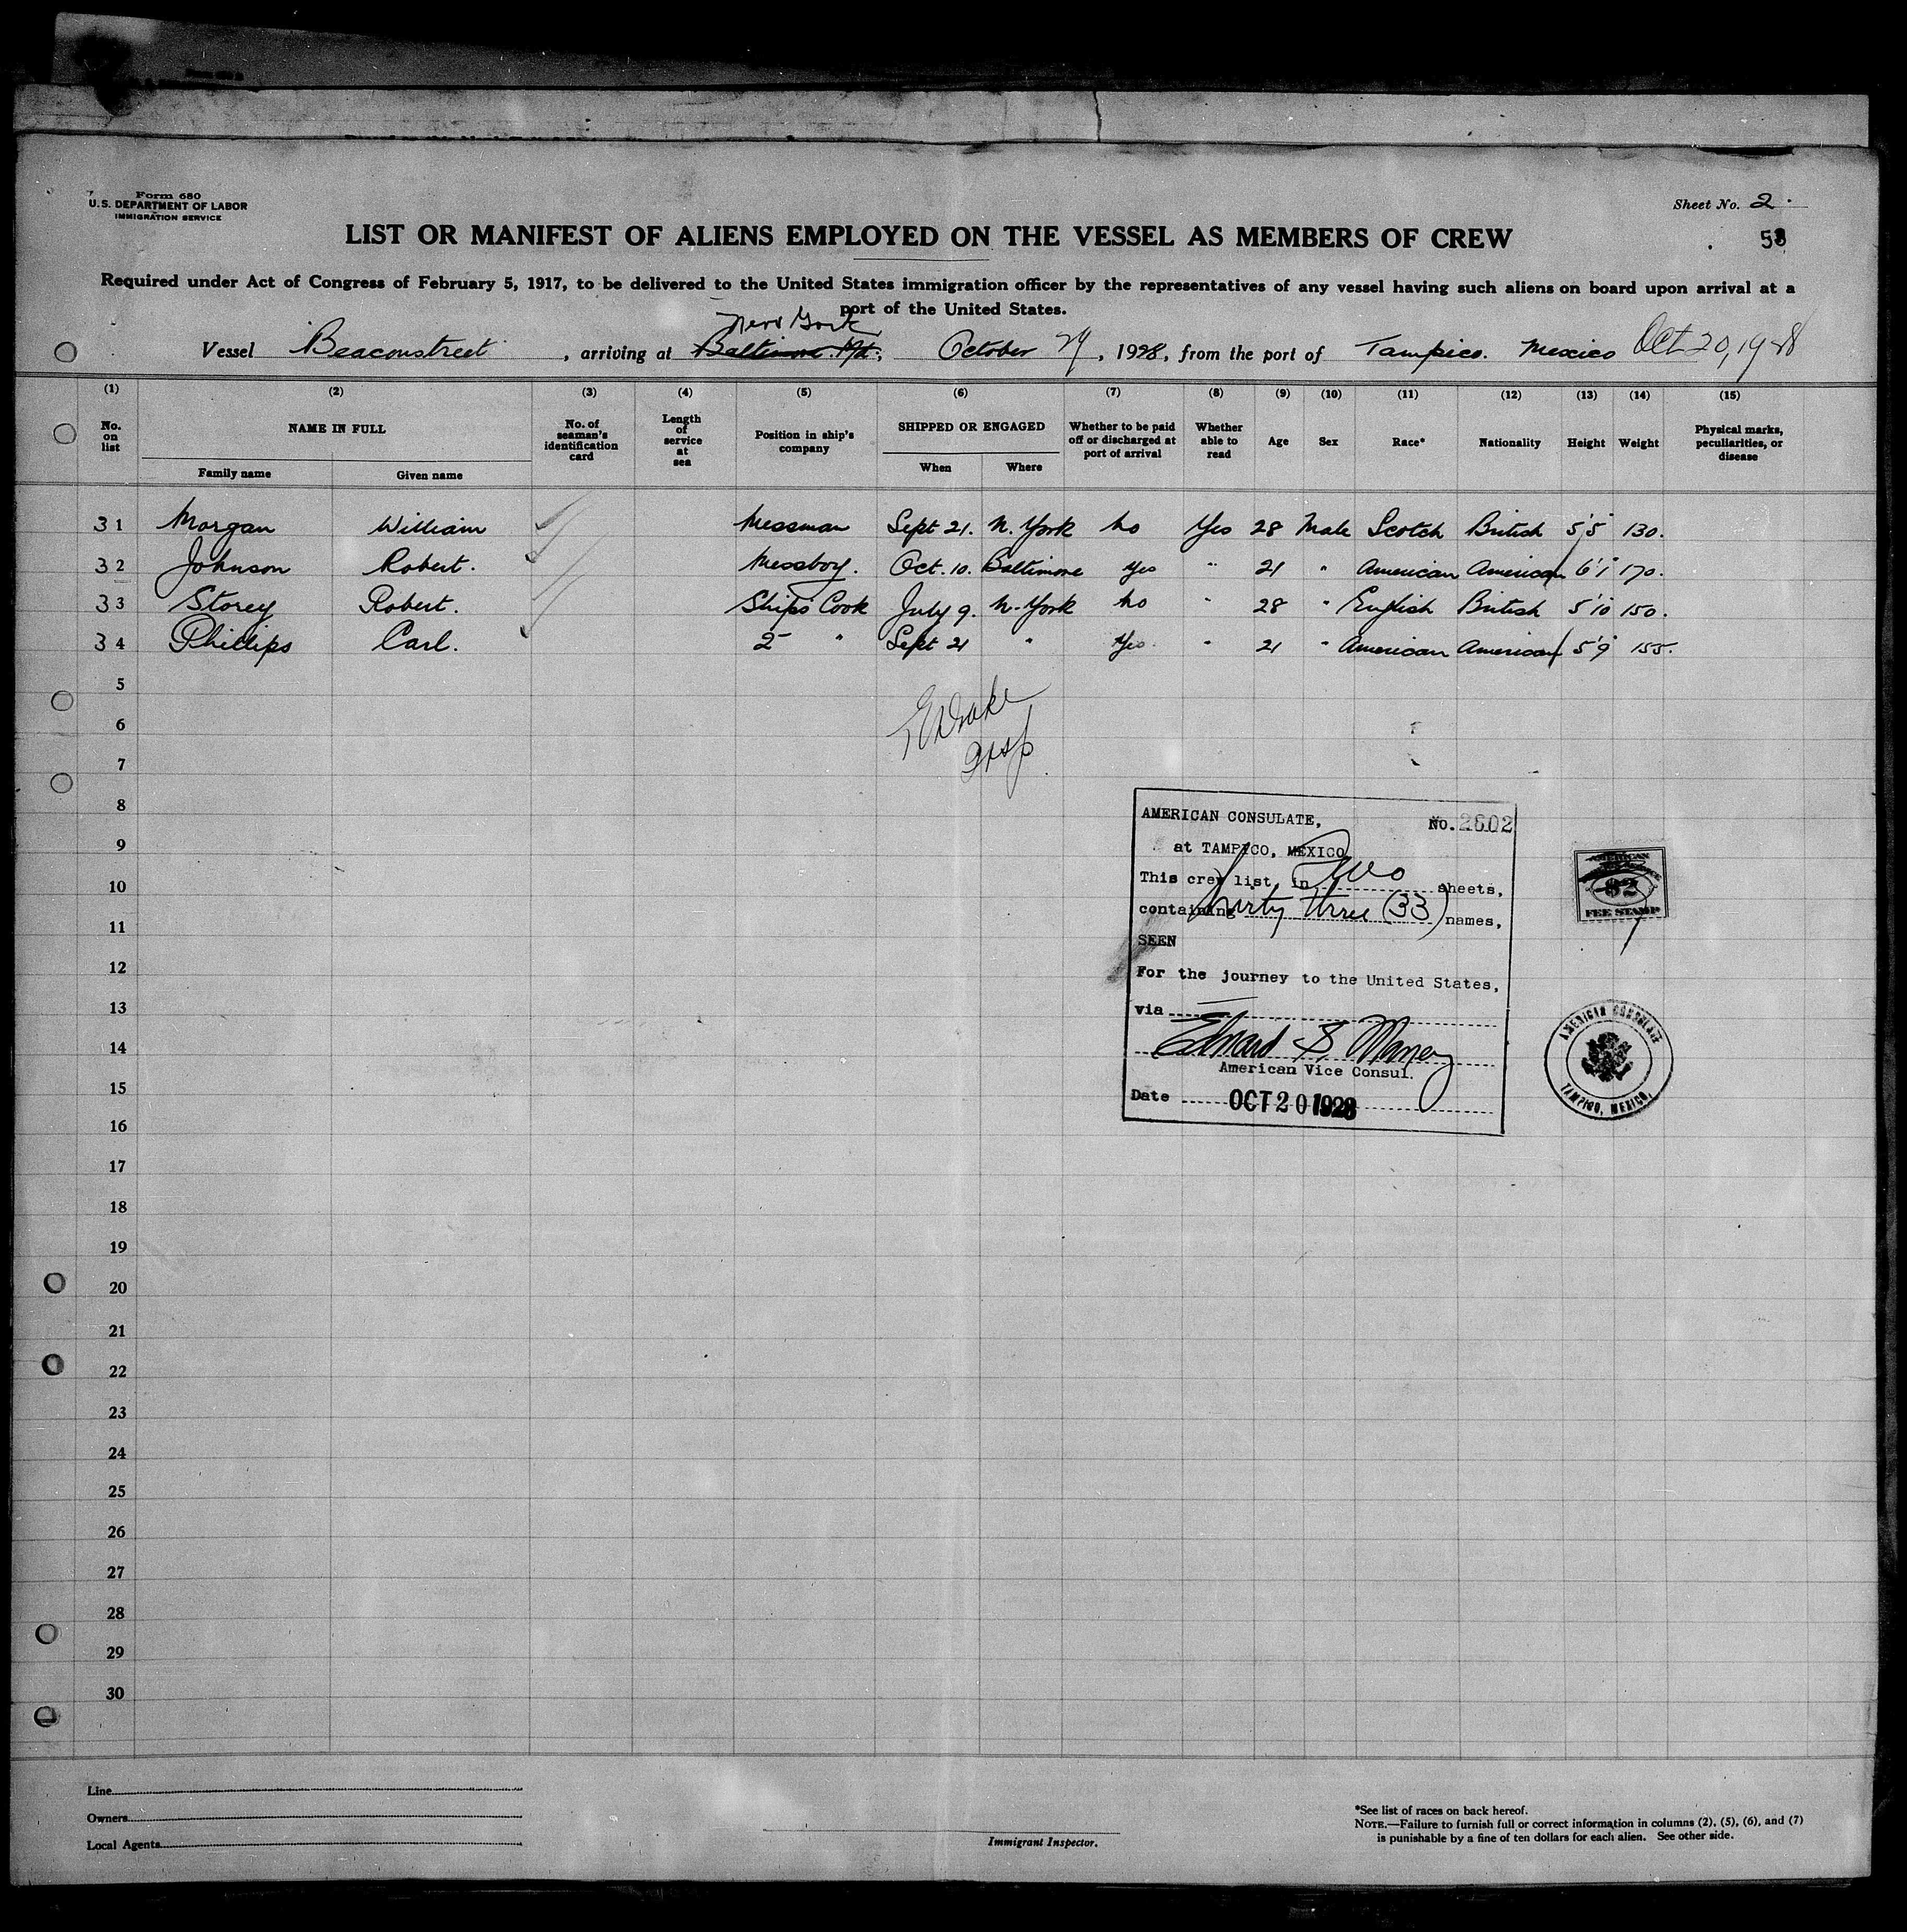 Form 680
U.S. DEPARTMENT OF LABOR
IMMIGRATION SERVICE
Sheet No. 2
LIST OR MANIFEST OF ALIENS EMPLOYED ON THE VESSEL AS MEMBERS OF CREW
Required under Act of Congress of February 5, 1917, to be delivered to the United States immigration officer by the representatives of any vessel having such aliens on board upon arrival at a
port of the United States.
New York
Vessel Beaconstreet, arriving at Baltimore. Md., October 29, 1928, from the port of Tampico. Mexico Oct 20, 1928
(1) (2) (3) (4) (5) (6) (7) (8) (9) (10) (11) (12) (13) (14) (15)
No. on list NAME IN FULL Family name Given name No. of seaman's identification card Length of service at sea Position in ship's company SHIPPED OR ENGAGED When Where Whether to be paid off or discharged at port of arrival Whether able to read Age Sex Race* Nationality Height Weight Physical marks, peculiarities, or disease
31 Morgan William Messman Sept 21. N. York No Yes 28 Male Scotch British 5'5" 130.
32 Johnson Robert. Messboy. Oct. 10. Baltimore Yes " 21 " American American 6'1" 170.
33 Storey Robert. Ships Cook July 9. N. York No " 28 " English British 5'10 150.
34 Phillips Carl. 2 " Sept 21 " Yes " 21 " American American 5'9" 155.
5
6
7
8
9
10
11
12
13
14
15
16
17
18
19
20
21
22
23
24
25
26
27
28
29
30
Insp.
AMERICAN CONSULATE, No. 2602
at TAMPICO, MEXICO
This crew list, in Two sheets,
containing thirty three (33) names,
SEEN
For the journey to the United States,
via
Edward S. Maney
American Vice Consul.
Date OCT 20 1928
AMERICAN
$2
FEE STAMP
AMERICAN CONSULATE
TAMPICO, MEXICO.
Line
Owners
Local Agents
Immigrant Inspector.
*See list of races on back hereof.
NOTE.—Failure to furnish full or correct information in columns (2), (5), (6), and (7)
is punishable by a fine of ten dollars for each alien. See other side.